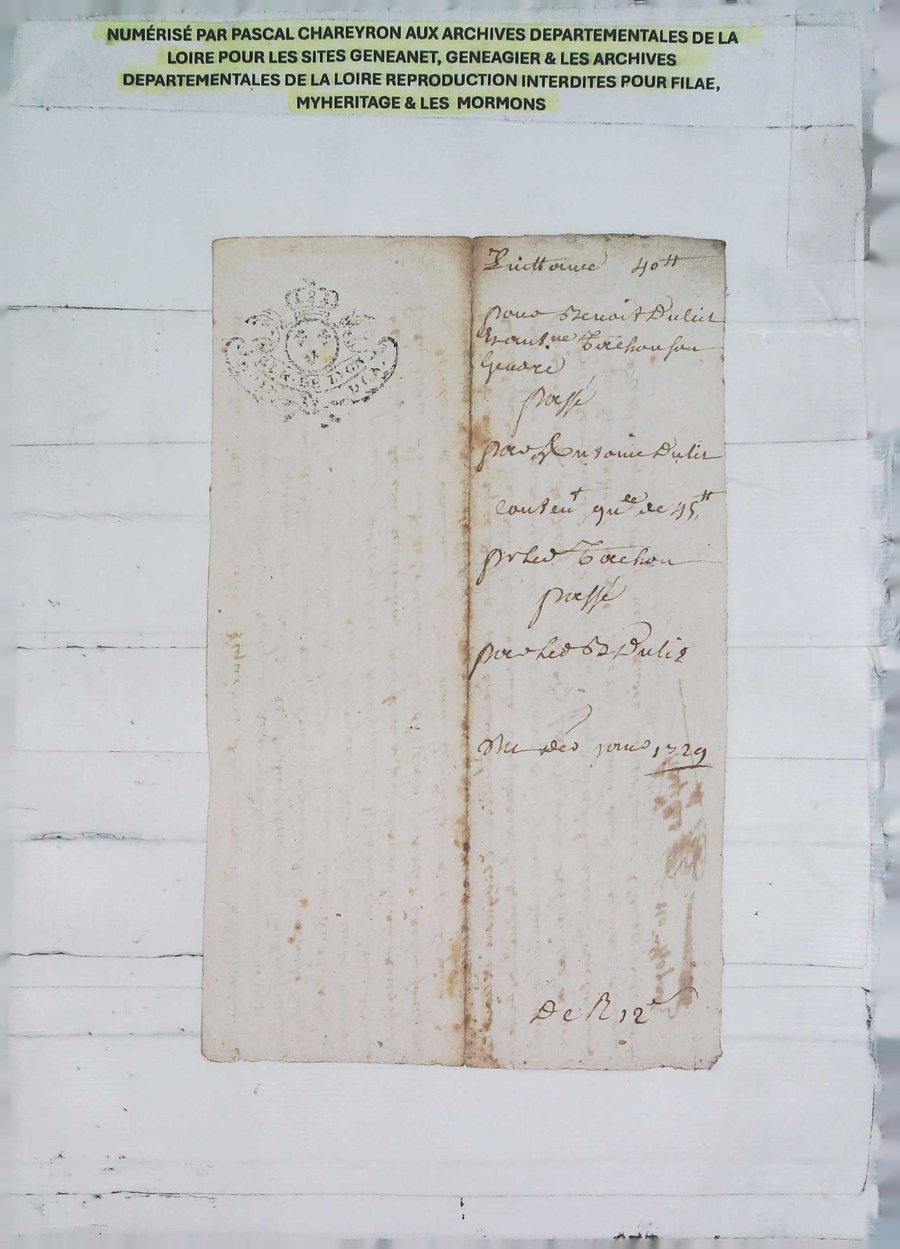 NUMÉRISÉ PAR PASCAL CHAREYRON AUX ARCHIVES DEPARTEMENTALES DE LA
LOIRE POUR LES SITES GENEANET, GENEAGIER & LES ARCHIVES
DEPARTEMENTALES DE LA LOIRE REPRODUCTION INTERDITES POUR FILAE,
MYHERITAGE & LES MORMONS
Quittance 40tt
pour Benoit Dulier
Tachon son
Gendre
passé
par Antoine Dulier
Content qu.ce de 45tt
p led Tachon
passé
par led Dulier
janv 1729
De R 12s
DE LYON